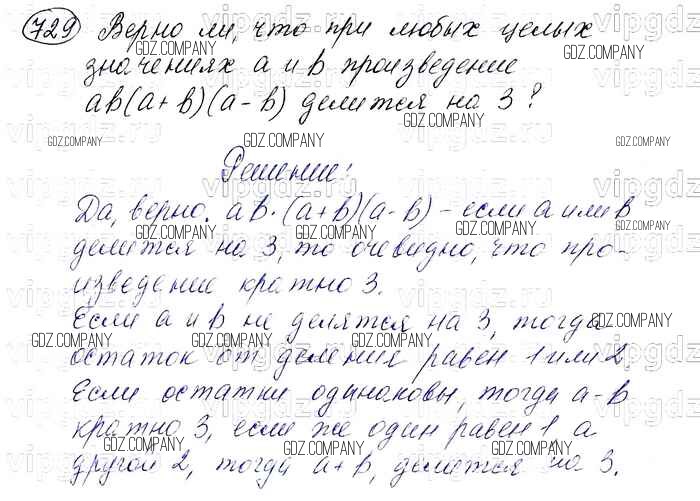 729 Верно ли, что при любых целых
значениях a и b произведение
ab(a+b)(a-b) делится на 3?
Решение:
Да, верно. ab·(a+b)(a-b) - если a или b
делится на 3, то очевидно, что про-
изведение кратно 3.
Если a и b не делятся на 3, тогда
остаток от деления равен 1 или 2.
Если остатки одинаковы, тогда a-b
кратно 3, если же один равен 1, а
другой 2, тогда a+b, делится на 3.